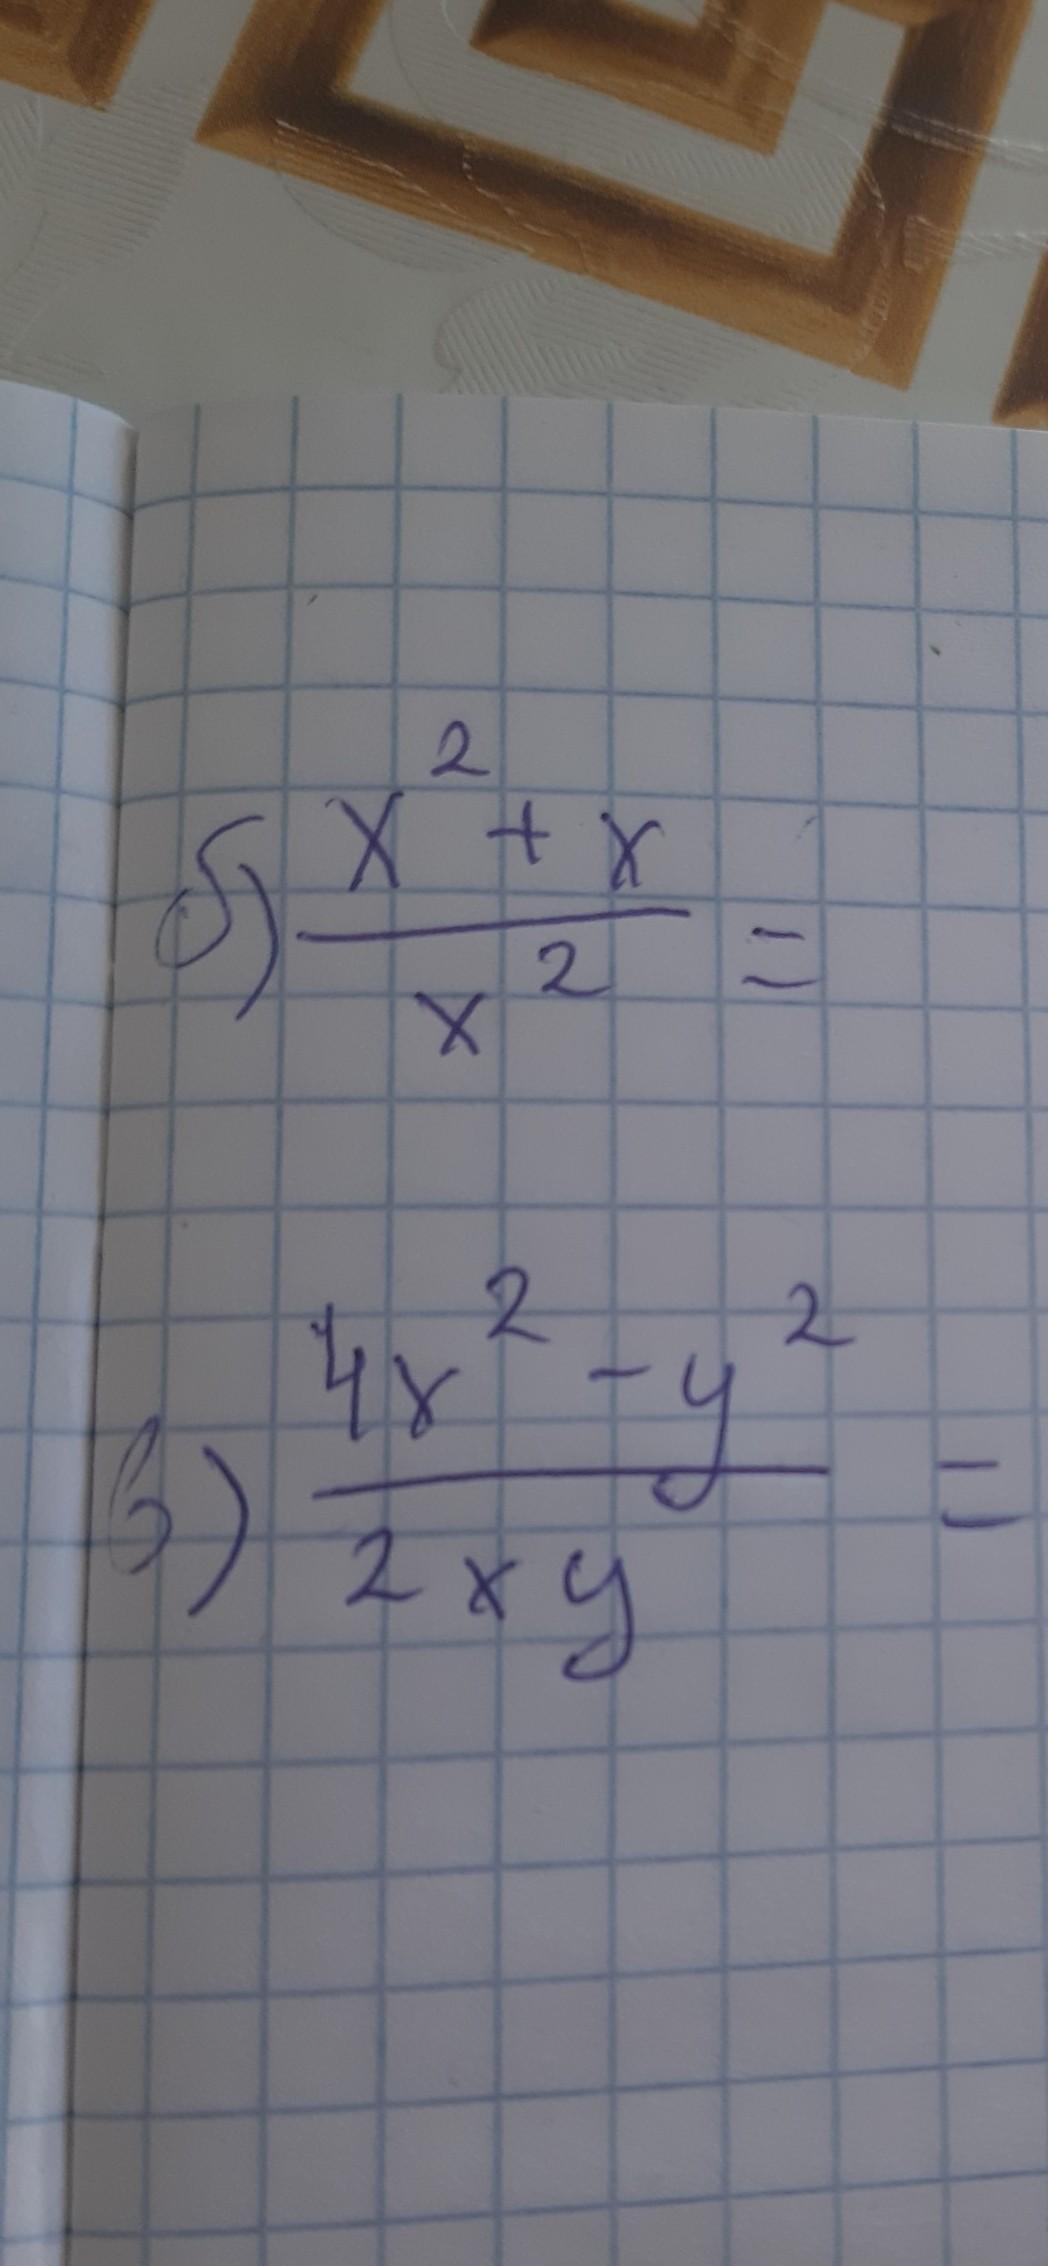 б) x² + x / x² =
в) 4x² - y² / 2xy =